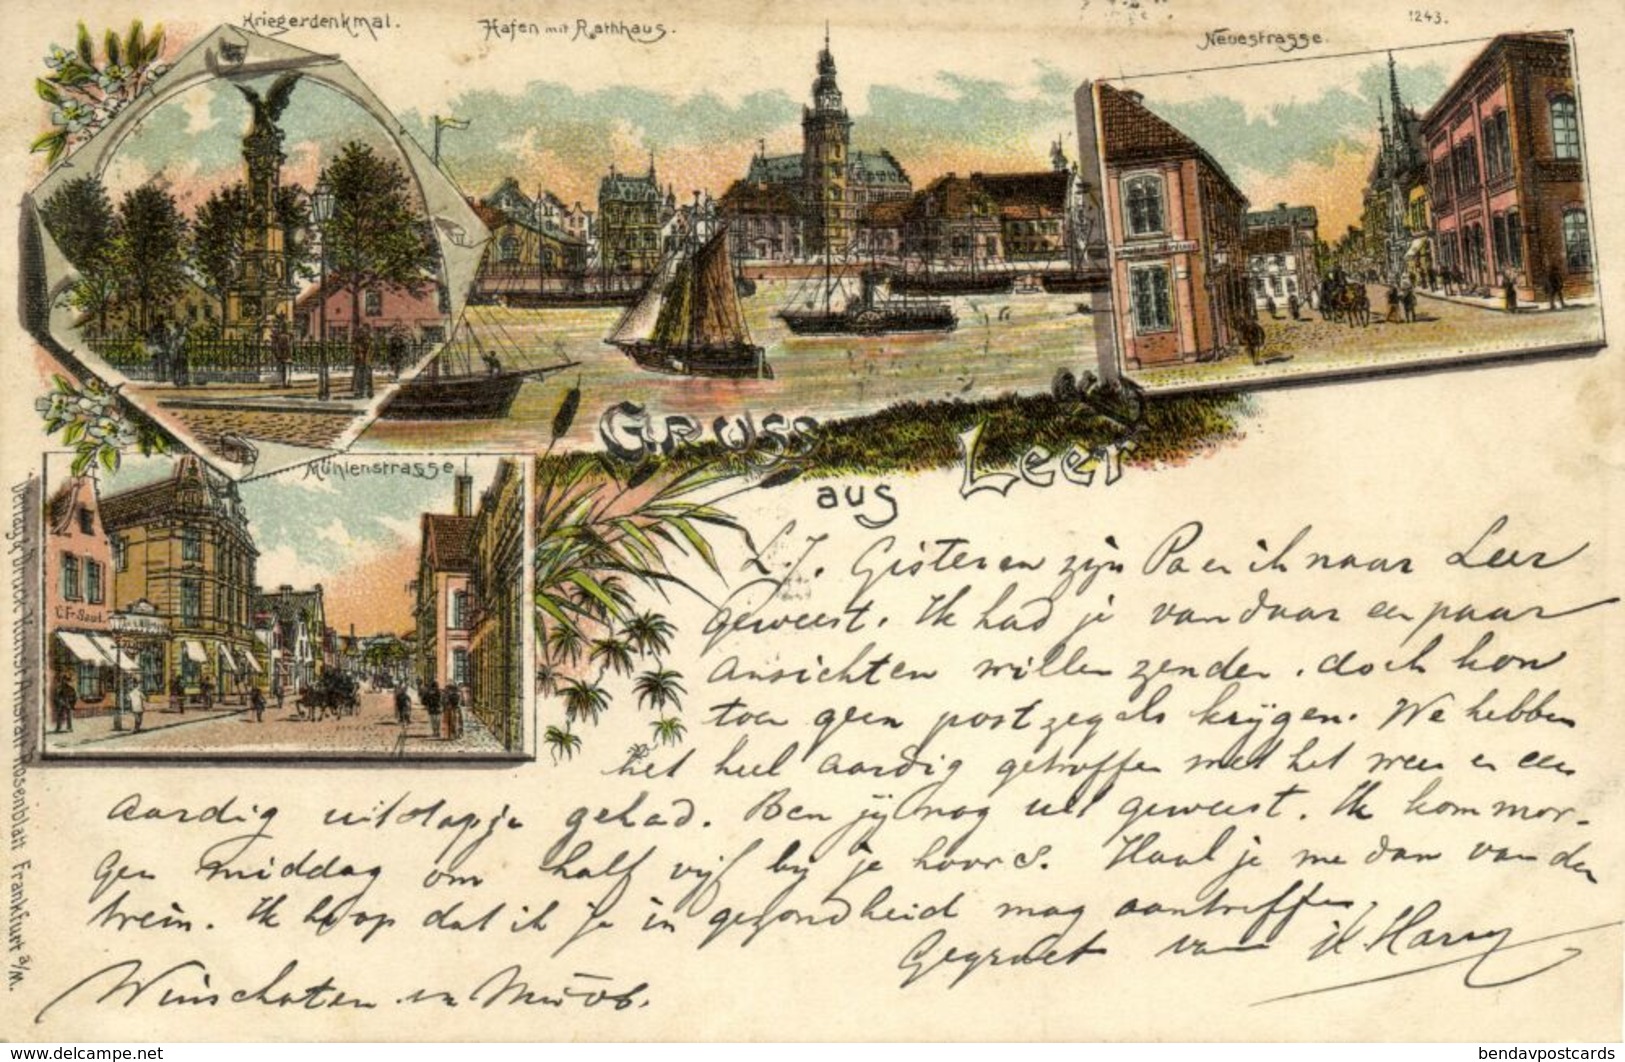 Kriegerdenkmal.
Hafen mit Rathhaus.
1243.
Neuestrasse.
Mühlenstrasse
C. Fr. Saul.
Gruss
aus Leer
Verlag & Druck Kunst-Anstalt Rosenblatt Frankfurt a/M.
L.J. Gisteren zijn Pa en ik naar Leer
geweest. Ik had je van daar een paar
ansichten willen zenden, doch kon
toen geen postzegels krijgen. We hebben
het heel aardig getroffen met het weer en een
aardig uitstapje gehad. Ben jij nog uit geweest. Ik kom mor-
gen middag om half vijf bij je hoor S. Haal je me dan van den
trein. Ik hoop dat ik je in gezondheid mag aantreffen,
Gegroet van Harry
Winschoten
www.delcampe.net
bendavpostcards